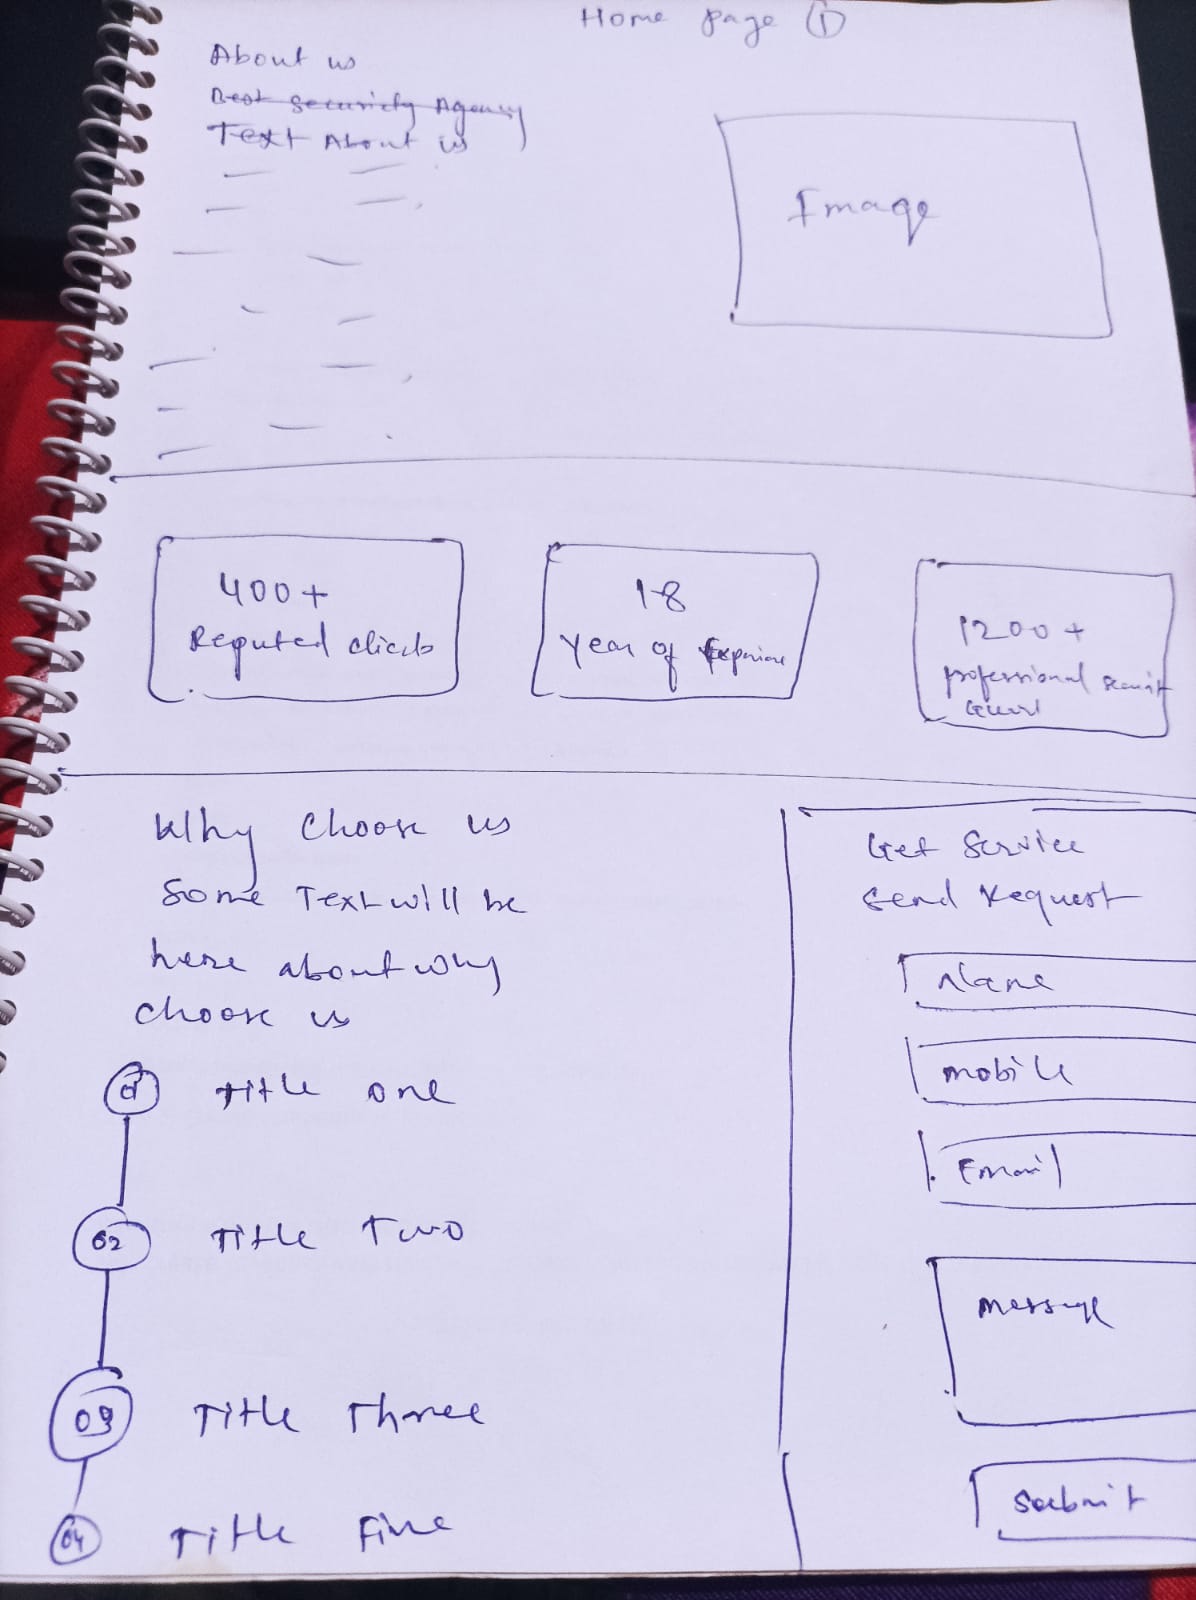 Home page 1
About us
Best security Agency
Text About us
Image
400+
Reputed
18
Year of
1200+
professional
Why choose us
Some Text will be
here about why
choose us
Title one
02 Title Two
03 Title Three
04 Title Five
Get Service
Send Request
Name
Mobile
Email
Message
Submit